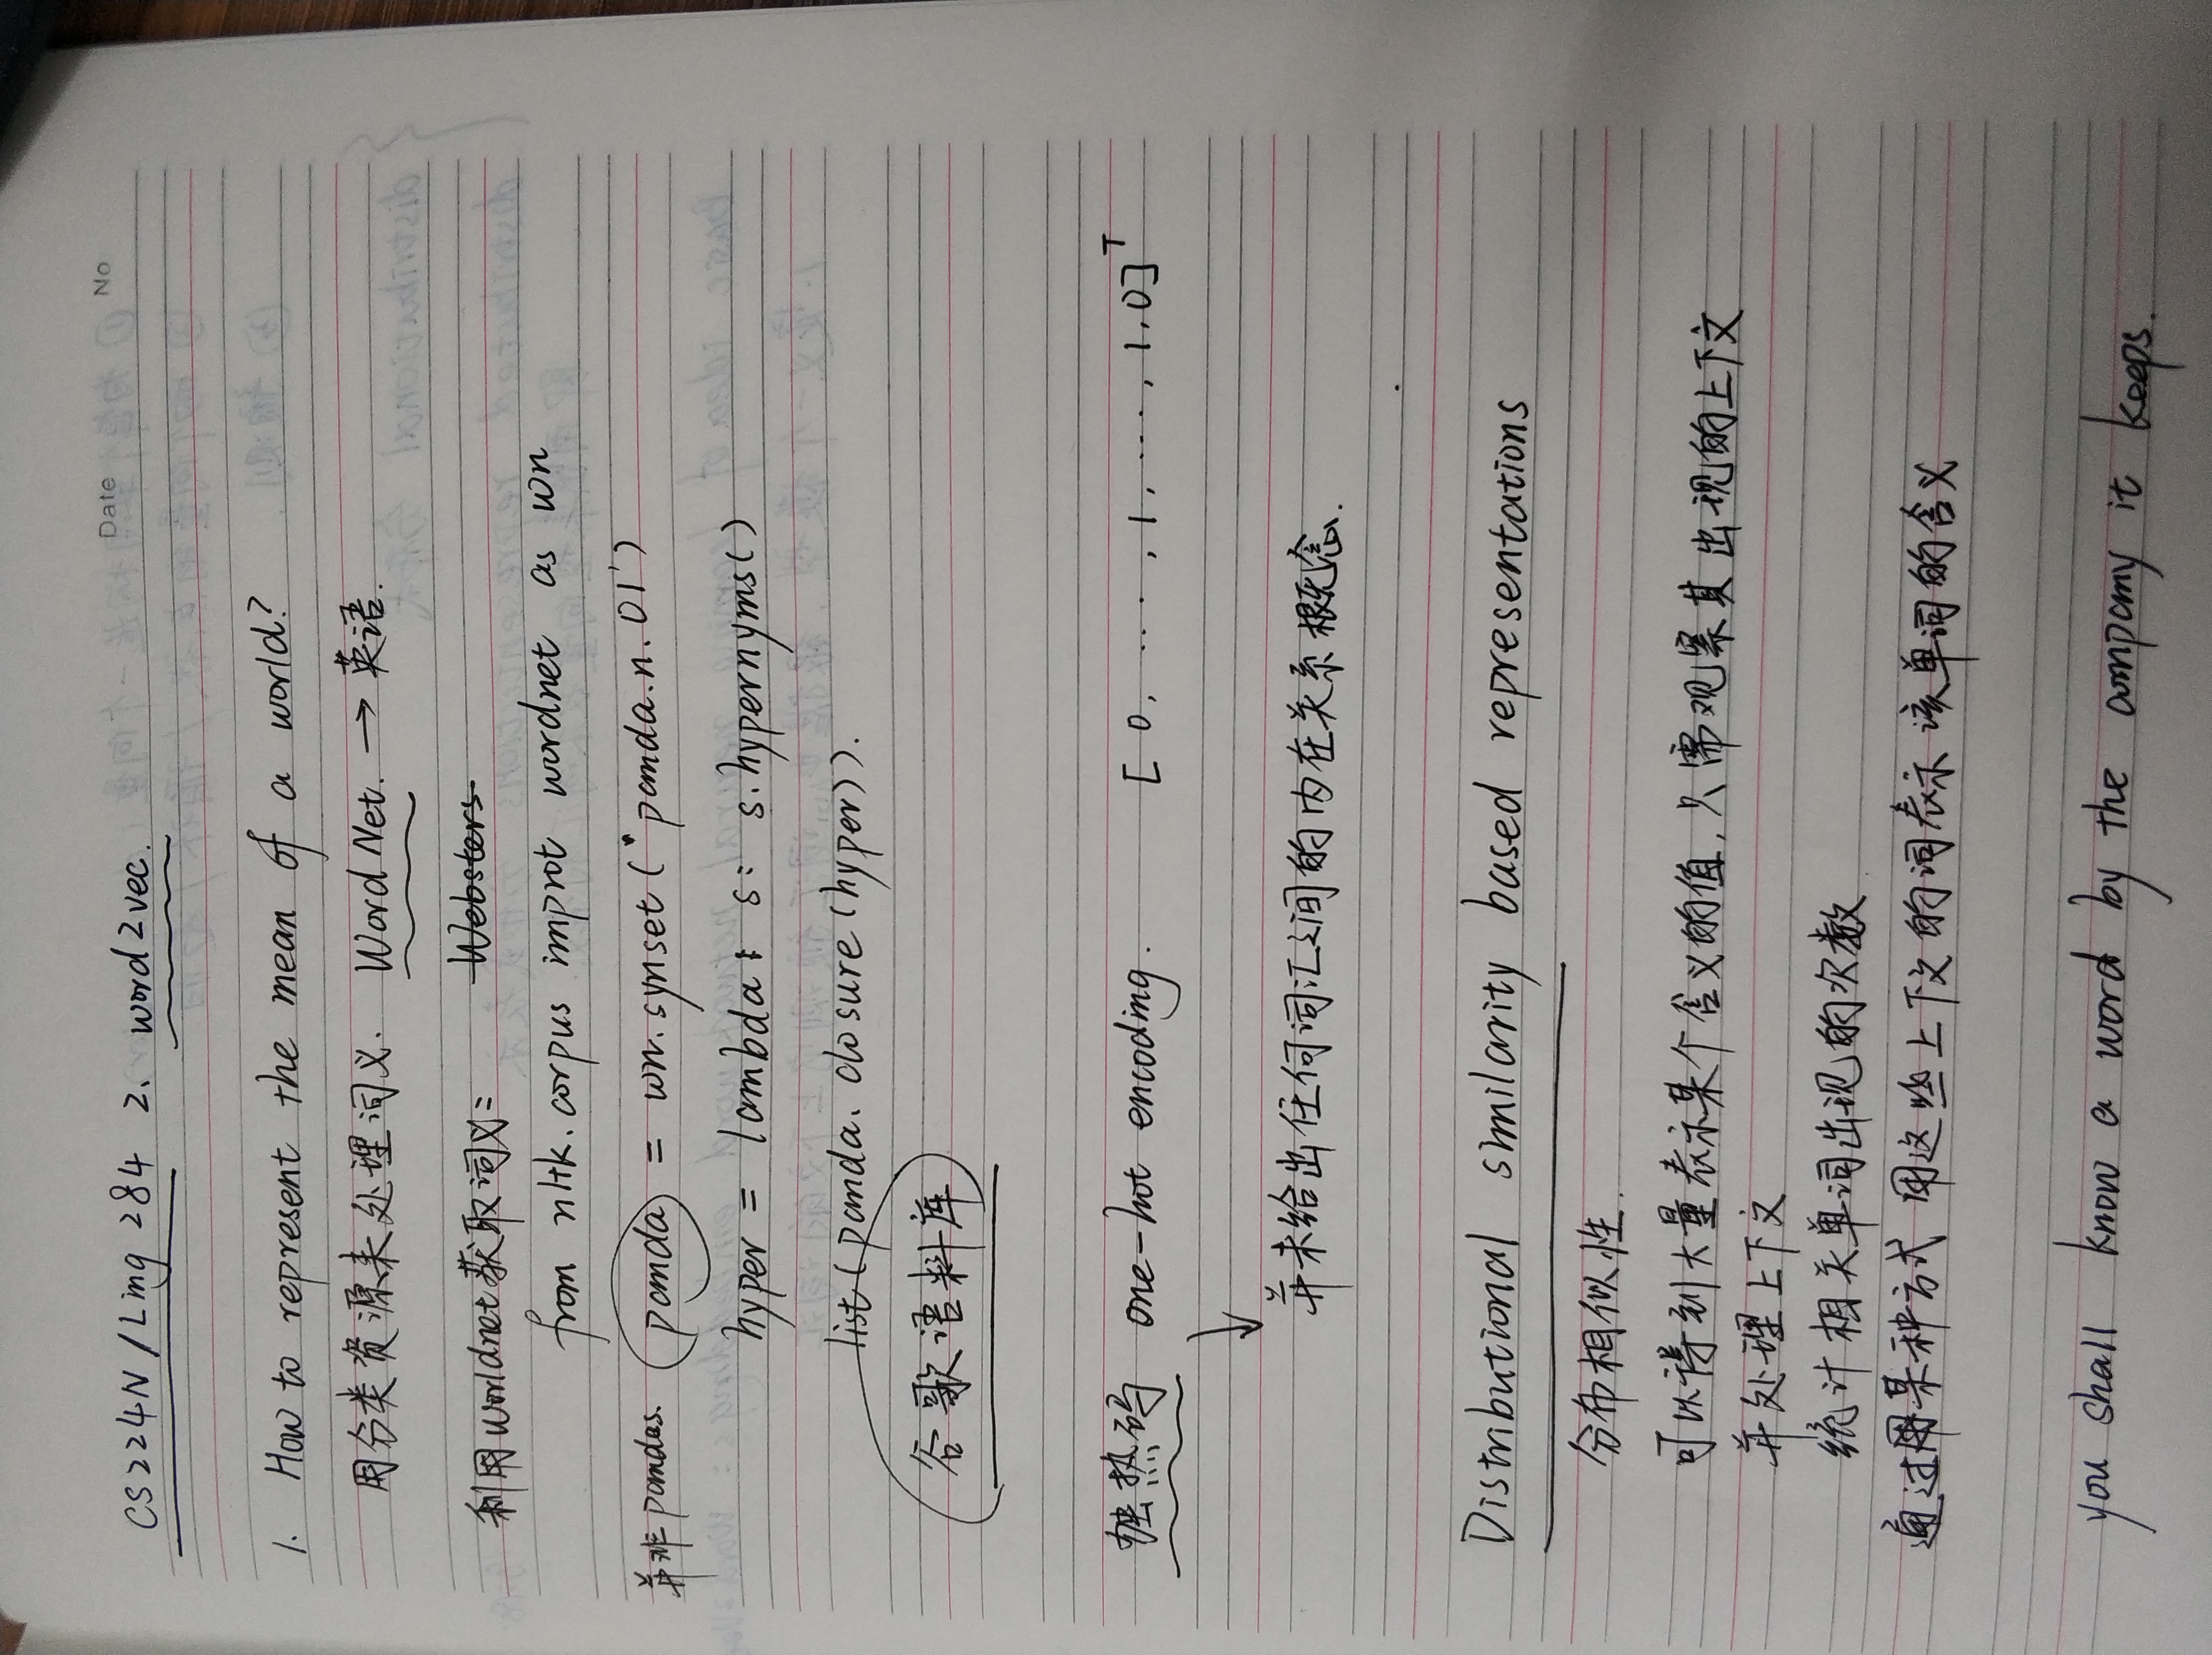 Date No
CS224N / Ling 284 2. word2vec.
1. How to represent the mean of a world?
用分类资源来处理词义. WordNet. → 英语.
Websters
利用worldnet获取词义:
from nltk.corpus improt wordnet as wn
并非pandas. panda = wn.synset('panda.n.01')
hyper = lambda : s: s.hypernyms()
list(panda.closure(hyper)).
谷歌语料库
独热码 one-hot encoding. [0, ..., 1, ..., 1,0]ᵀ
↓
并未给出任何词汇之间的内在关系概念.
Distributional similarity based representations
分布相似性.
可以得到大量表示某个含义的值,只需观察其出现的上下文
并处理上下文
统计相关单词出现的次数
通过用某种方式 用这些上下文的词表示该单词的含义
you shall know a word by the company it keeps.